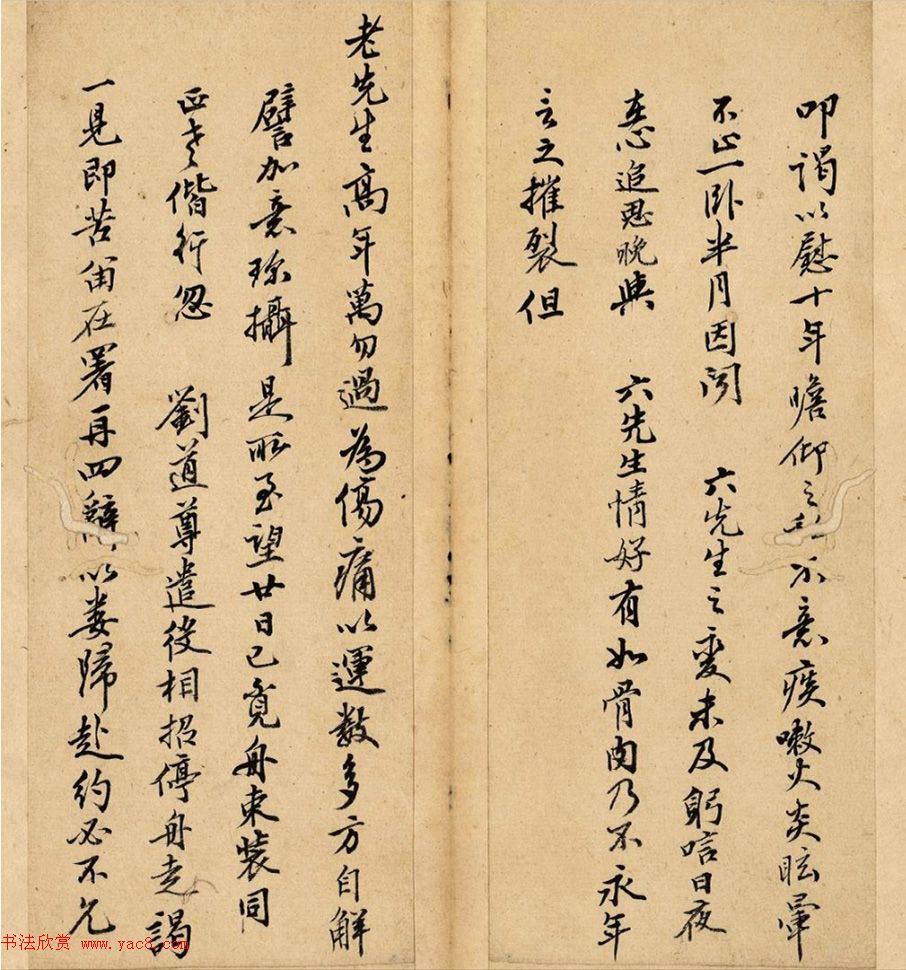 叩謁以慰十年瞻仰之私不意痰嗽火炎眩暈
不止一臥半月因聞 六先生之變未及躬唁日夜
追思晚與 六先生情好有如骨肉乃不永年
言之摧裂但
老先生高年萬勿過為傷痛以運數多方自解
譬加意珍攝是所至望廿日已覓舟束裝同
偕行忽 劉道尊遣役相招停舟走謁
一見即苦留在署再四辭以婁歸赴約必不允
书法欣赏 www.yac8.com